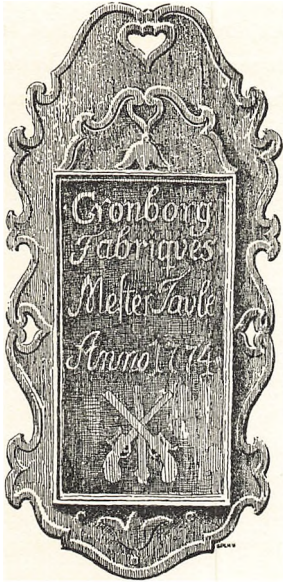 Cronborg
Fabriqves
Mester Tavle
Anno 1774